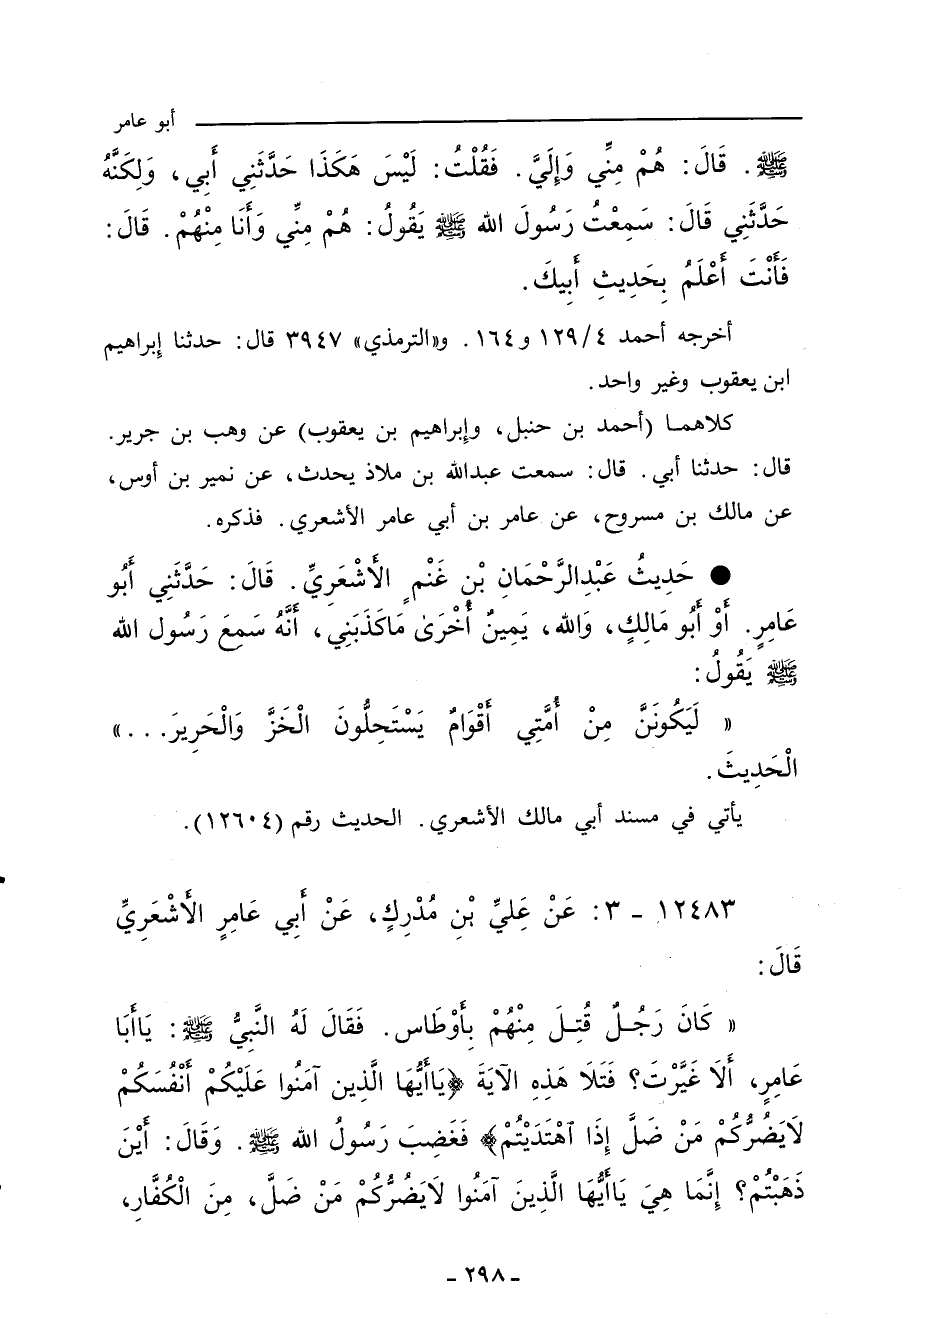 أبو عامر
ﷺ. قَالَ: هُمْ مِنِّي وَإِلَيَّ. فَقُلْتُ: لَيْسَ هَكَذَا حَدَّثَنِي أَبِي، وَلِكَنَّهُ
حَدَّثَنِي قَالَ: سَمِعْتُ رَسُولَ الله ﷺ يَقُولُ: هُمْ مِنِّي وَأَنَا مِنْهُمْ. قَالَ:
فَأَنْتَ أَعْلَمُ بِحَدِيثِ أَبِيكَ.
أخرجه أحمد ٤/١٢٩ و١٦٤. و«الترمذي» ٣٩٤٧ قال: حدثنا إبراهيم
ابن يعقوب وغير واحد.
كلاهما (أحمد بن حنبل، وإبراهيم بن يعقوب) عن وهب بن جرير.
قال: حدثنا أبي. قال: سمعت عبدالله بن ملاذ يحدث، عن نمير بن أوس،
عن مالك بن مسروح، عن عامر بن أبي عامر الأشعري. فذكره.
● حَدِيثُ عَبْدِالرَّحْمَانِ بْنِ غَنْمٍ الأَشْعَرِيِّ. قَالَ: حَدَّثَنِي أَبُو
عَامِرٍ. أَوْ أَبُو مَالِكٍ، وَالله، يَمِينٌ أُخْرَىٰ مَاكَذَبَنِي، أَنَّهُ سَمِعَ رَسُول الله
ﷺ يَقُولُ:
« لَيَكُونَنَّ مِنْ أُمَّتِي أَقْوَامٌ يَسْتَحِلُّونَ الْخَزَّ وَالْحَرِيرَ...»
الْحَدِيثَ.
يأتي في مسند أبي مالك الأشعري. الحديث رقم (١٢٦٠٤).
١٢٤٨٣ - ٣: عَنْ عَلِيِّ بْنِ مُدْرِكٍ، عَنْ أَبِي عَامِرٍ الأَشْعَرِيِّ
قَالَ:
« كَانَ رَجُلٌ قُتِلَ مِنْهُمْ بِأَوْطَاس. فَقَالَ لَهُ النَّبِيُّ ﷺ: يَاأَبَا
عَامِرٍ، أَلَا غَيَّرْتَ؟ فَتَلَا هَذِهِ الآيَةَ ﴿يَاأَيُّهَا الَّذِين آمَنُوا عَلَيْكُمْ أَنْفُسَكُمْ
لَايَضُرُّكُمْ مَنْ ضَلَّ إِذَا ٱهْتَدَيْتُمْ﴾ فَغَضِبَ رَسُولُ الله ﷺ. وَقَالَ: أَيْنَ
ذَهَبْتُمْ؟ إِنَّمَا هِيَ يَاأَيُّهَا الَّذِينَ آمَنُوا لَايَضُرُّكُمْ مَنْ ضَلَّ، مِنَ الْكُفَّارِ،
- ٢٩٨ -